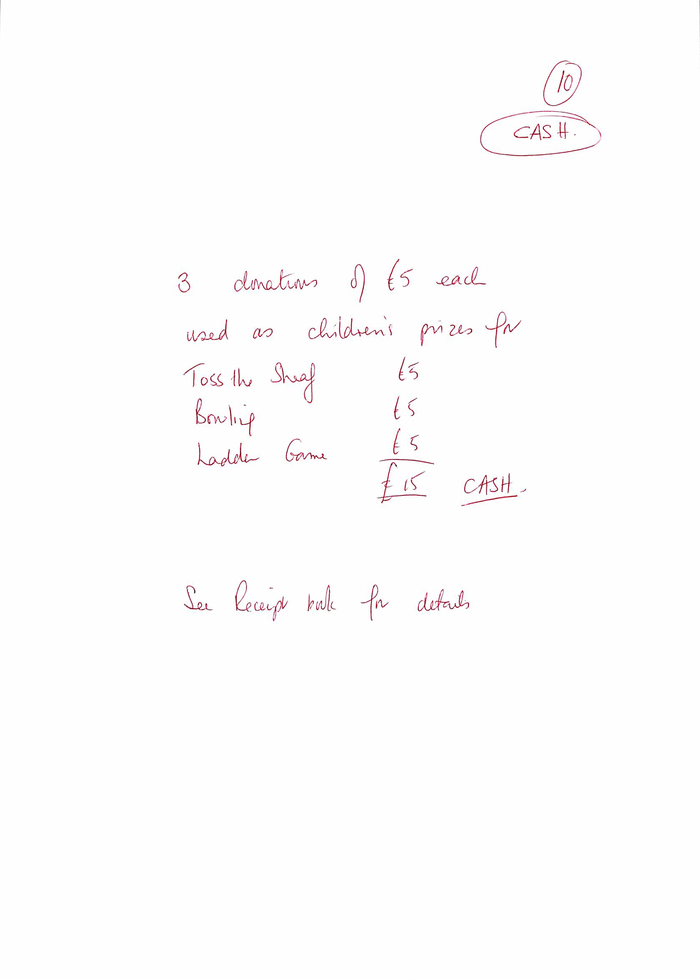 10
CASH.
3 donations of £5 each
used as children's prizes for
Toss the Sheaf £5
Bowling £5
Ladder Game £5
£15 CASH.
See Receipt book for details